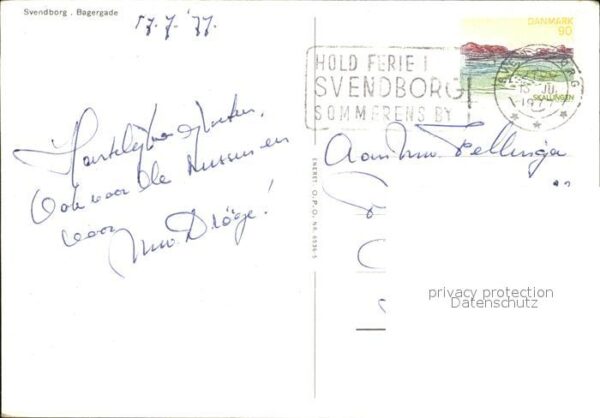 Svendborg . Bagergade
17.7.'77.
DANMARK
90
HOLD FERIE I
SVENDBORG
SOMMERENS BY
SKALLINGEN
Hartelijke groeten,
Ook voor de zussen en
voor
Mw. Dröge!
Aan Mw. Fellinga
ENERET. O.P.O. NR. 6536-5
privacy protection
Datenschutz